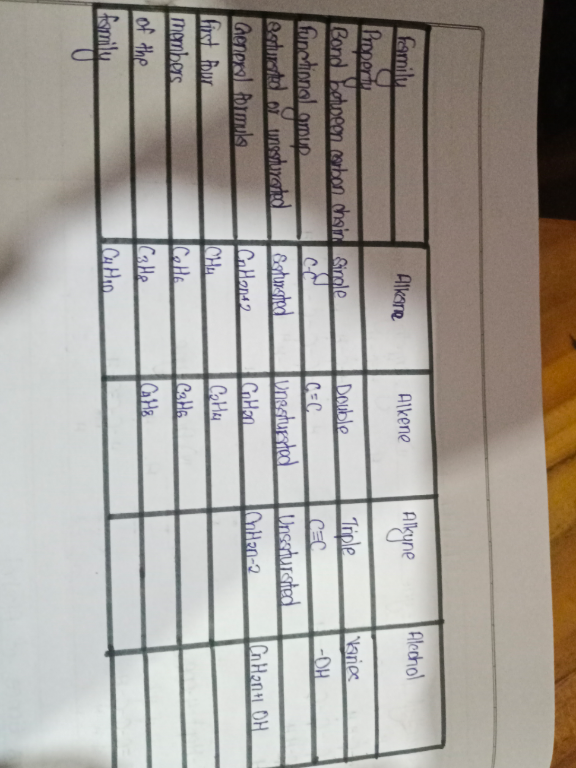 Family Alkane Alkene Alkyne Alcohol
Property
Bond between carbon chain single Double Triple Varies
Functional group C-C C=C C≡C -OH
saturated or unsaturated saturated Unsaturated Unsaturated
General formula CnH2n+2 CnH2n CnH2n-2 CnH2n+1 OH
First four CH4 C2H4
members C2H6 C3H6
of the C3H8 C4H8
family C4H10